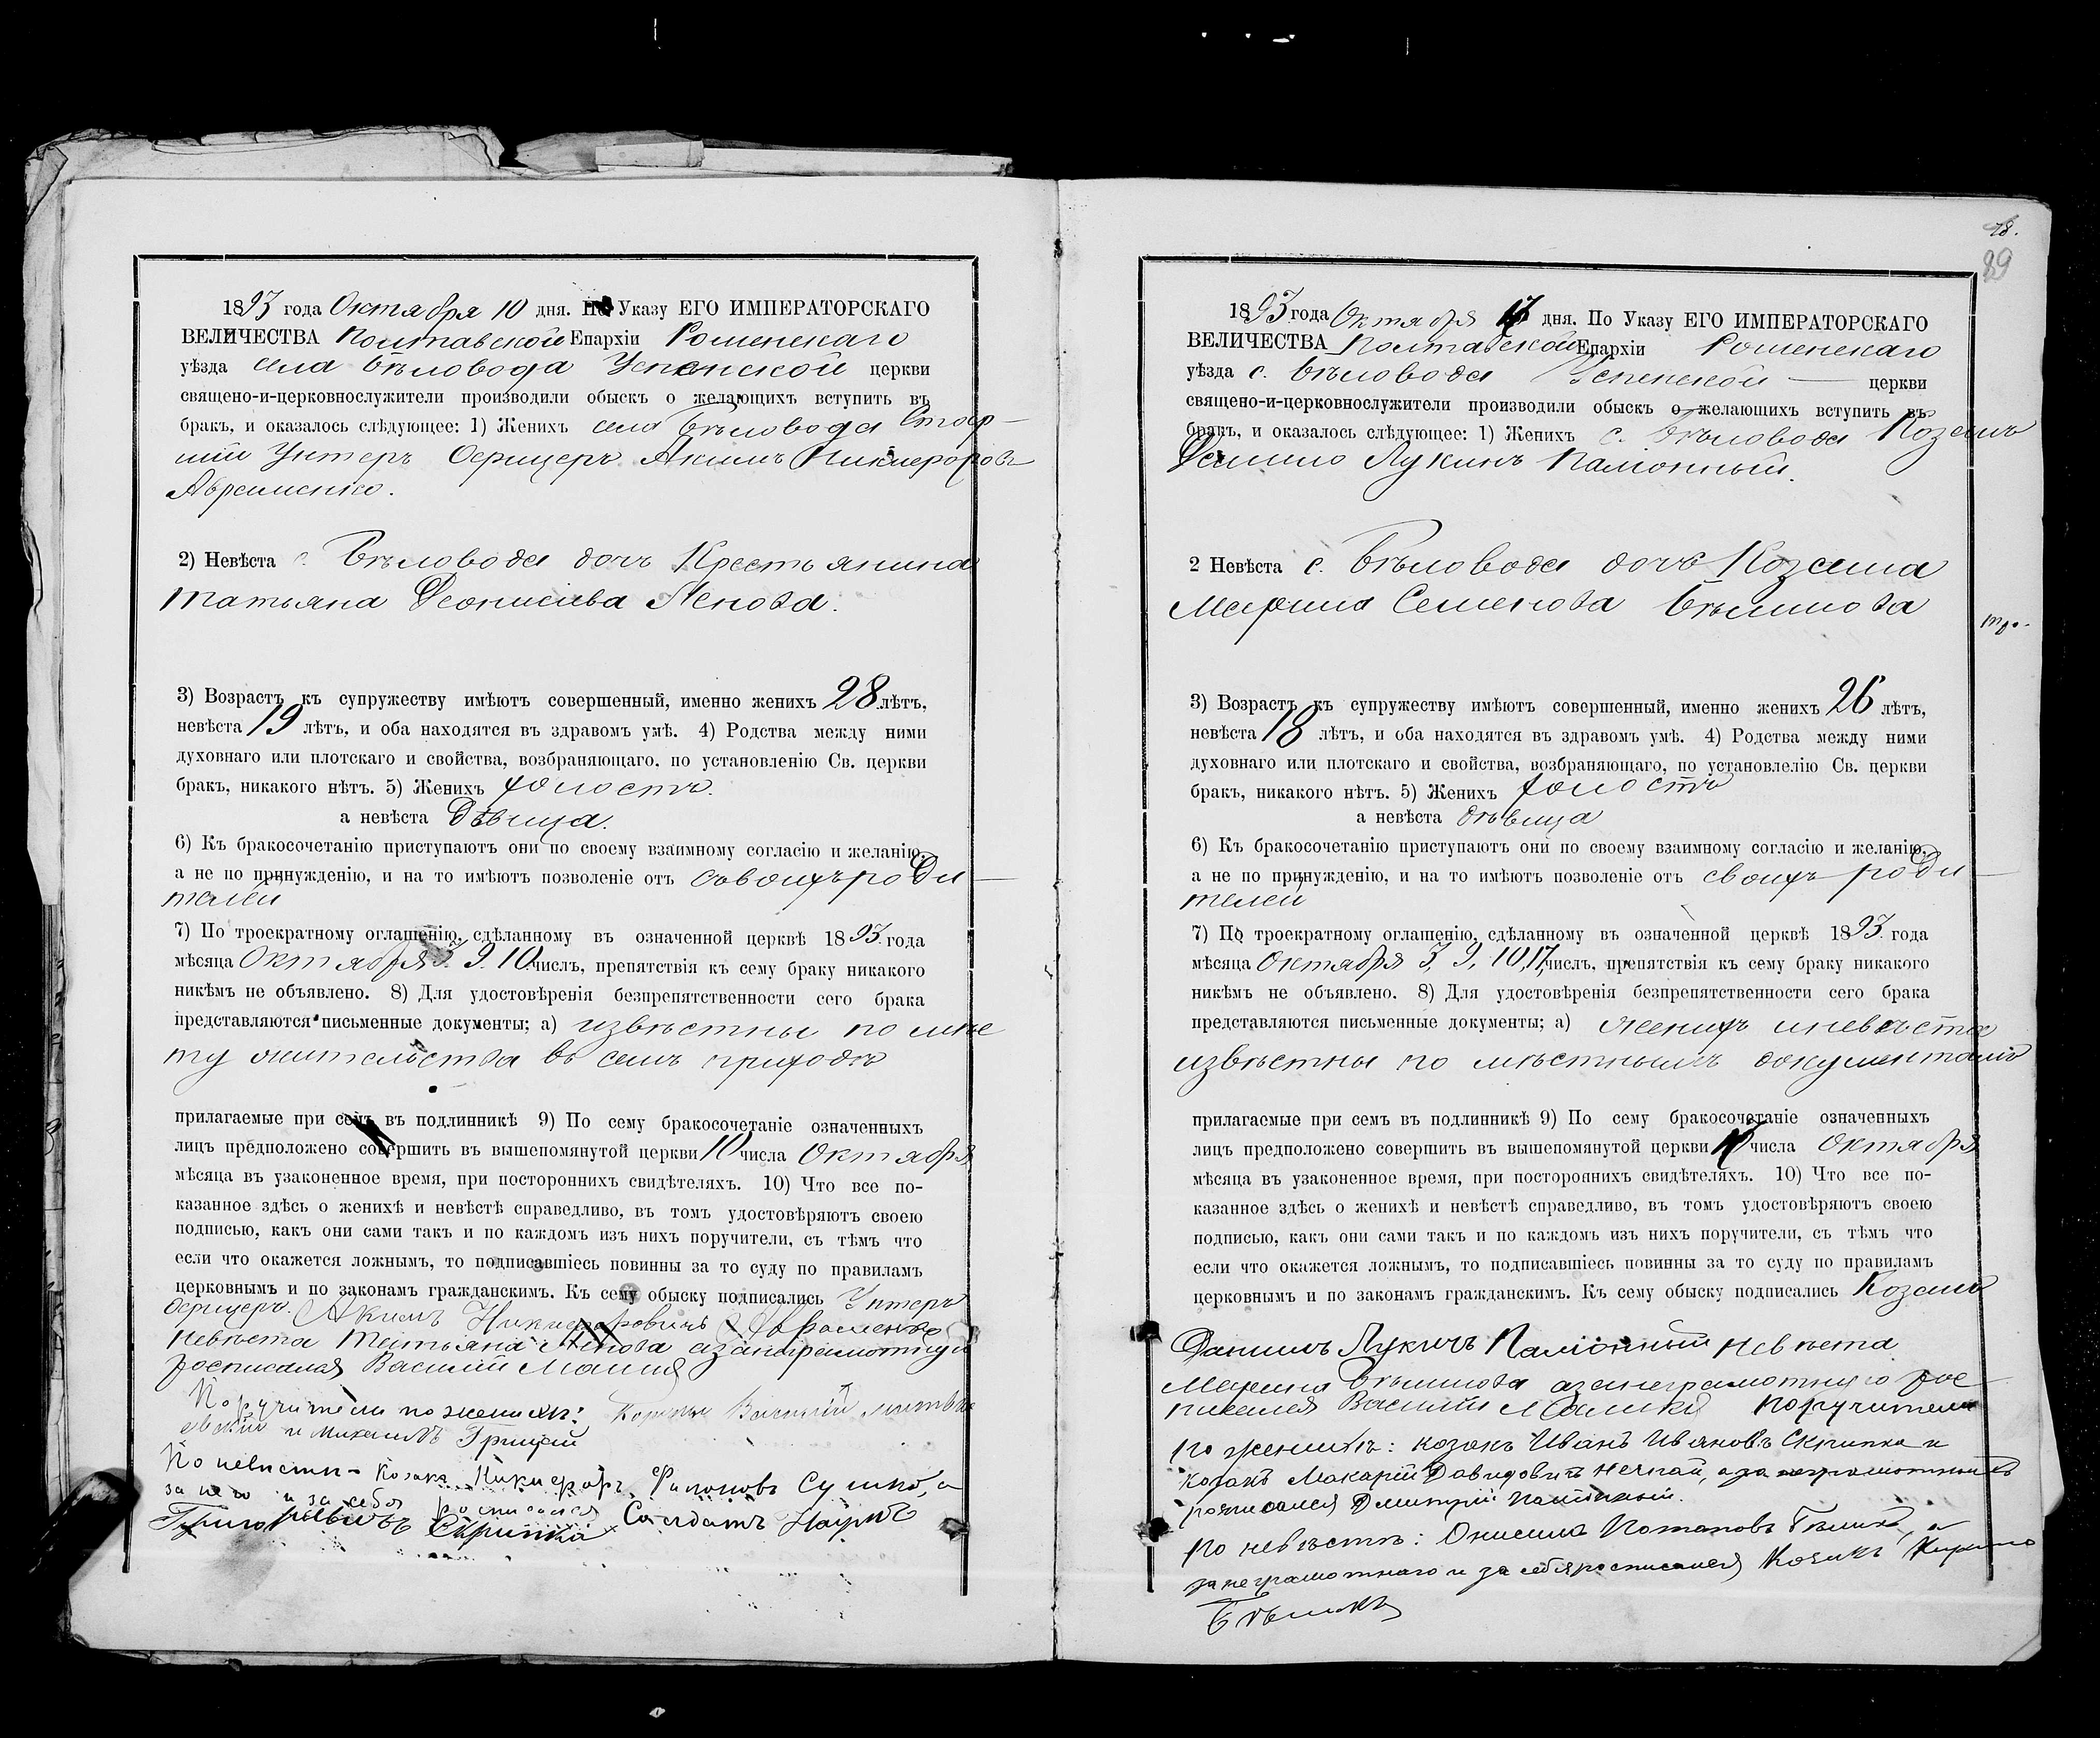 1893 года Октября 10 дня. По Указу ЕГО ИМПЕРАТОРСКАГО
ВЕЛИЧЕСТВА Полтавской Епархіи Роменскаго
уѣзда села Бѣловода Успенской церкви
священо-и-церковнослужители производили обыскъ о желающихъ вступить въ
бракъ, и оказалось слѣдующее: 1) Женихъ села Бѣловода Стар-
шій Унтеръ Офицеръ Акимъ Никифоровъ
Авраменко.
2) Невѣста с. Бѣловода дочь Крестьянина
Татьяна Деонисіева
3) Возрастъ къ супружеству имѣютъ совершенный, именно женихъ 28 лѣтъ,
невѣста 19 лѣтъ, и оба находятся въ здравомъ умѣ. 4) Родства между ними
духовнаго или плотскаго и свойства, возбраняющаго, по установленію Св. церкви
бракъ, никакого нѣтъ. 5) Женихъ холостъ.
а невѣста Дѣвица.
6) Къ бракосочетанію приступаютъ они по своему взаимному согласію и желанію,
а не по принужденію, и на то имѣютъ позволеніе отъ своихъ роди-
телей
7) По троекратному оглашенію, сдѣланному въ означенной церквѣ 1893 года
мѣсяца Октября 3. 9. 10. числъ, препятствія къ сему браку никакого
никѣмъ не объявлено. 8) Для удостовѣренія безпрепятственности сего брака
представляются письменные документы; а) извѣстны по мѣс
ту жительства въ семъ приходѣ
прилагаемые при семъ въ подлинникѣ 9) По сему бракосочетаніе означенныхъ
лицъ предположено совершить въ вышепомянутой церкви 10 числа Октября
мѣсяца въ узаконенное время, при постороннихъ свидѣтеляхъ. 10) Что все по-
казанное здѣсь о женихѣ и невѣстѣ справедливо, въ томъ удостовѣряютъ своею
подписью, какъ они сами такъ и по каждомъ изъ нихъ поручители, съ тѣмъ что
если что окажется ложнымъ, то подписавшіесь повинны за то суду по правиламъ
церковнымъ и по законамъ гражданскимъ. Къ сему обыску подписались Унтеръ
офицеръ. Акимъ Никифоровичъ Авраменко
Невѣста Татьяна а за неграмотную
росписался Василій
Поручители по женихѣ: Василій
и Михаилъ Грицай
По невѣсти - Козакъ Никифоръ Сушко, а
за него и за себя росписался Солдатъ Наумъ
Григорьевичъ Скрипка
18.
89
1893 года Октября 17 дня. По Указу ЕГО ИМПЕРАТОРСКАГО
ВЕЛИЧЕСТВА Полтавской Епархіи Роменскаго
уѣзда с. Бѣловода Успенской церкви
священо-и-церковнослужители производили обыскъ о желающихъ вступить въ
бракъ, и оказалось слѣдующее: 1) Женихъ с. Бѣловода Козакъ
Данило Лукинъ Наліонный.
2 Невѣста с. Бѣловода дочь Козака
Марина Семенова Бѣликова
3) Возрастъ къ супружеству имѣютъ совершенный, именно женихъ 26 лѣтъ,
невѣста 18 лѣтъ, и оба находятся въ здравомъ умѣ. 4) Родства между ними
духовнаго или плотскаго и свойства, возбраняющаго, по установлелію Св. церкви
бракъ, никакого нѣтъ. 5) Женихъ холостъ
а невѣста дѣвица
6) Къ бракосочетанію приступаютъ они по своему взаимному согласію и желанію,
а не по принужденію, и на то имѣютъ позволеніе отъ своихъ роди-
телей
7) По троекратному оглашенію, сдѣланному въ означенной церквѣ 1893 года
мѣсяца Октября 3, 9, 10, 17, числъ, препятствія къ сему браку никакого
никѣмъ не объявлено. 8) Для удостовѣренія безпрепятственности сего брака
представляются письменные документы; а) женихъ и невѣста
извѣстны по мѣстнымъ документамъ
прилагаемые при семъ въ подлинникѣ 9) По сему бракосочетаніе означенныхъ
лицъ предположено совершить въ вышепомянутой церкви числа Октября
мѣсяца въ узаконенное время, при постороннихъ свидѣтеляхъ. 10) Что все по-
казанное здѣсь о женихѣ и невѣстѣ справедливо, въ томъ удостовѣряютъ своею
подписью, какъ они сами такъ и по каждомъ изъ нихъ поручители, съ тѣмъ что
если что окажется ложнымъ, то подписавшіесь повинны за то суду по правиламъ
церковнымъ и по законамъ гражданскимъ. Къ сему обыску подписались Козакъ
Даниилъ Лукичъ Наліонный Невѣста
Марина Бѣликова а за неграмотную рос
писался Василій Поручители
по женихѣ: козакъ Иванъ Ивановъ Скрипка и
козакъ Макарій Давидовичъ Нечай, а за неграмотныхъ
росписался Дмитрій Наліонный.
по невѣстѣ: Онисимъ Потаповъ Бѣликъ, а
за неграмотнаго и за себя росписался Козакъ Кирило
Бѣликъ